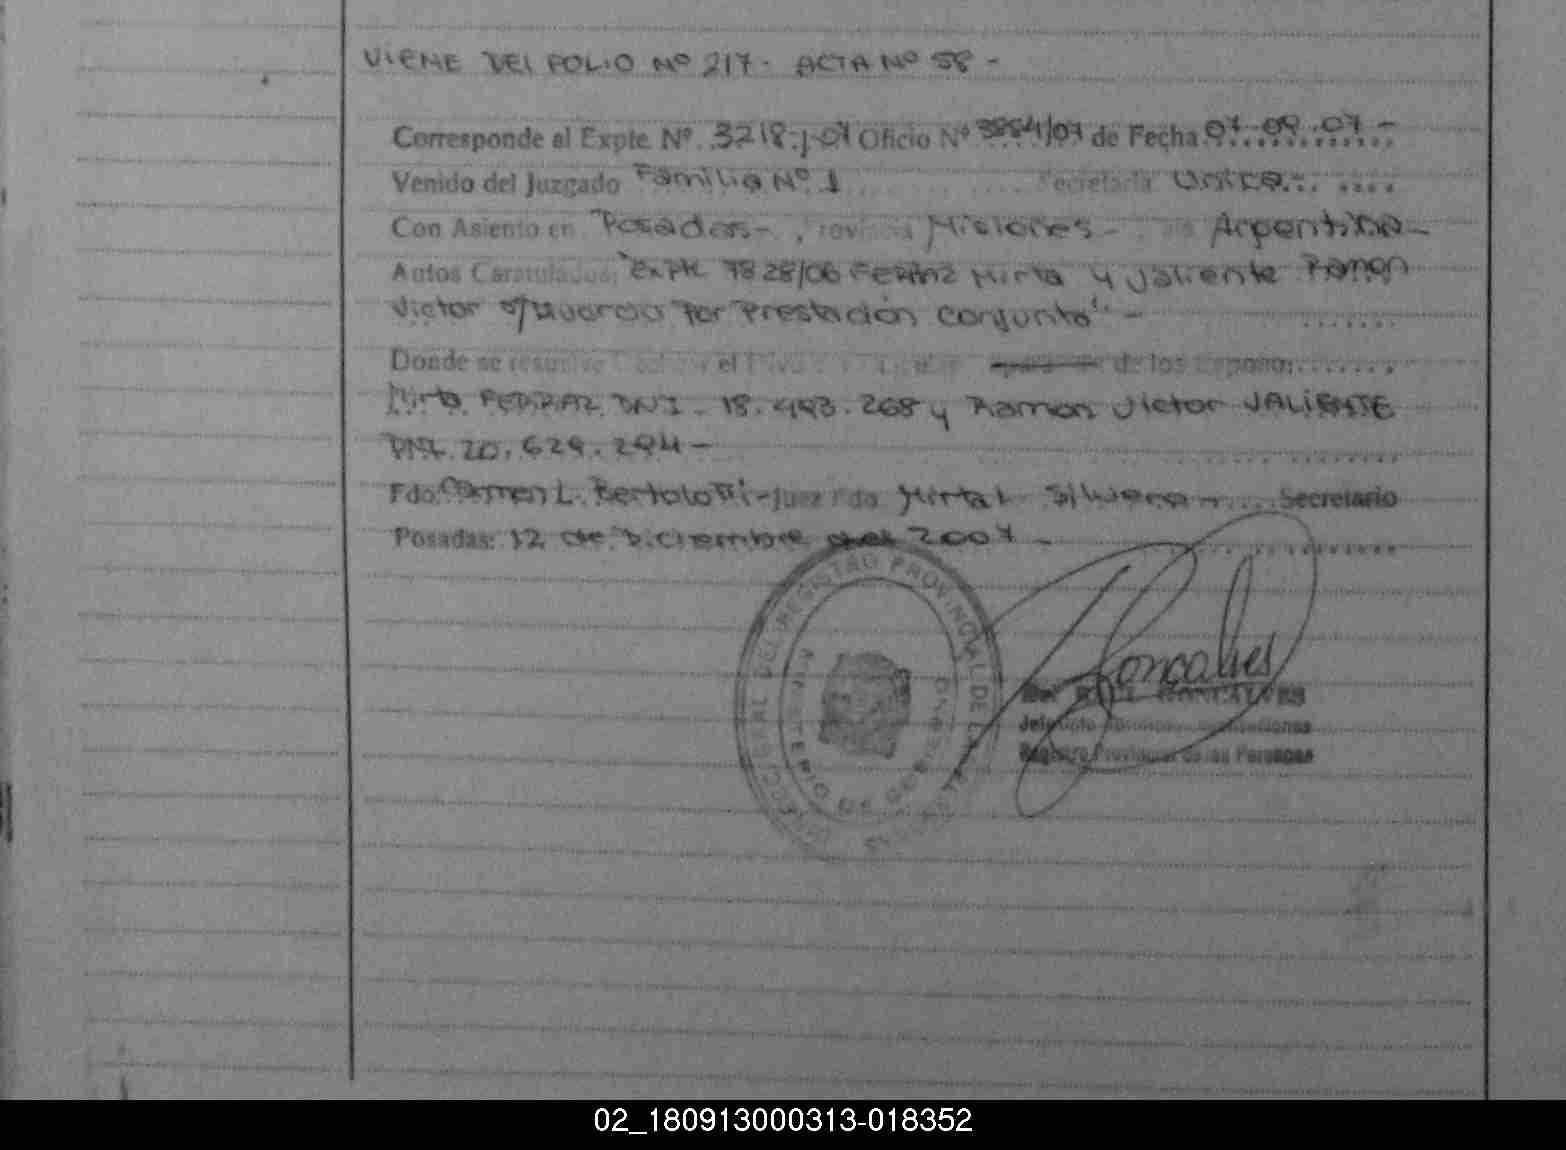 VIENE DEL FOLIO Nº 217. ACTA Nº 58 -
Corresponde al Expte Nº 3218-J-07 Oficio Nº 3884/07 de Fecha 07-09-07 -
Venido del Juzgado Familia Nº 1 Secretaria Unica.-
Con Asiento en Posadas-, Provincia Misiones- Argentina-
Autos Caratulados: "Expte 7828/06 Ferraz Mirta y Valiente Ramon
Victor s/Divorcio Por Presentación conjunta" -
Donde se resuelve el de los Esposos:
Mirta FERRAZ DNI. 18.493.268 y Ramon Victor VALIENTE
DNI. 20.629.294 -
Fdo: Carmen L. Bertolotti - Juez Fdo Mirta L. Silvera - Secretario
Posadas: 12 de Diciembre del 2007 -
DIRECC. GRAL DEL REGISTRO PROVINCIAL DE LAS PERSONAS
MINISTERIO DE GOBIERNO
Goncalves
RAUL GONCALVES
Jefe Dpto
Registro Provincial de las Personas
02_180913000313-018352